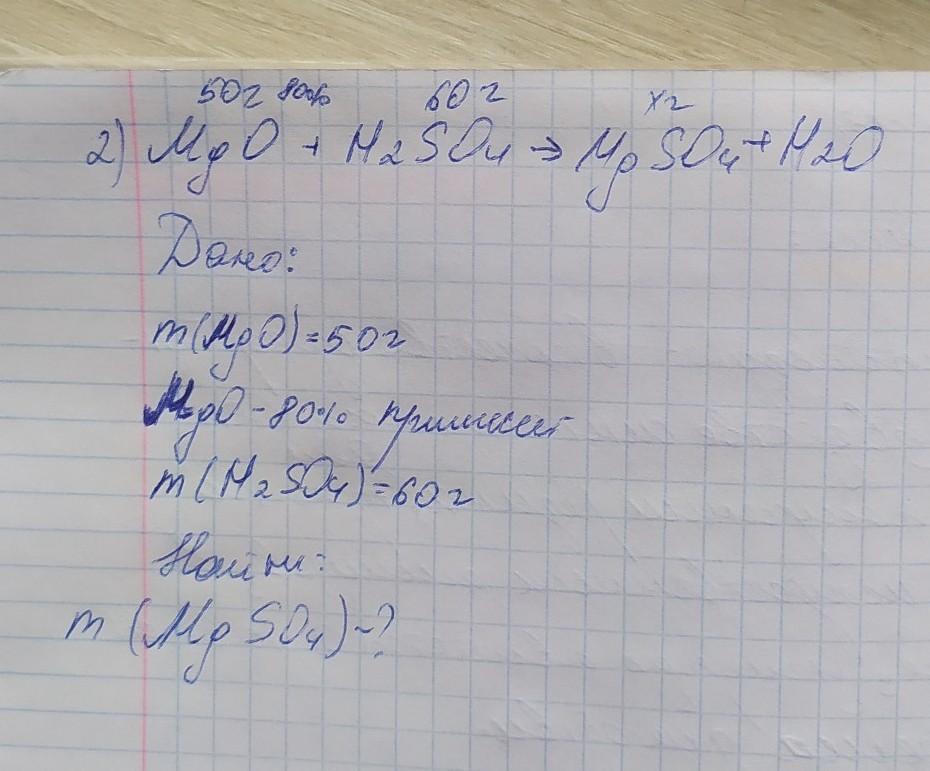 50г 80% 60 г х г
2) MgO + H2SO4 → MgSO4 + H2O
Дано:
m(MgO) = 50г
MgO - 80% примесей
m(H2SO4) = 60 г
Найти:
m(MgSO4) - ?